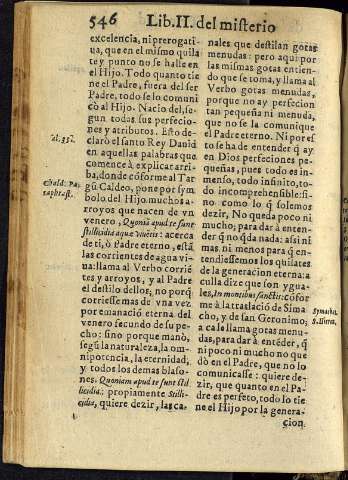 546 Lib. II. del misterio
excelencia, ni prerogati-
ua, que en el mismo quila
te y punto no se halle en
el Hijo. Todo quanto tie
ne el Padre, fuera del ser
Padre, todo se lo comuni
cò al Hijo. Nacio del, se-
gun todas sus perfecio-
nes y atributos. Esto de-
clarò el santo Rey Dauid
en aquellas palabras que
comence à explicar arri-
ba, donde cõforme al Tar
gũ Caldeo, pone por sym
bolo del Hijo muchos a-
rroyos que nacen de vn
venero, Quoniã apud te sunt
stillicidia aquæ viuẽtis: acerca
de ti, ò Padre eterno, estã
las corrientes de agua vi-
ua: llama al Verbo corriẽ
tes y arroyos, y al Padre
el destilo dellos; no porq̃
corriessemas de vna vez
por emanació eterna del
venero fecundo de su pe-
cho: sino porque manò,
segũ la naturaleza, la om-
nipotencia, la eternidad,
y todos los demas blaso-
nes. Quoniam apud te sunt stil
licidia: propiamente Stilli-
cidia, quiere dezir, las ca-
nales que destilan gotas
menudas: pero aqui por
las mismas gotas entien-
do que se toma, y llama al
Verbo gotas menudas,
porque no ay perfecion
tan pequeña ni menuda,
que no se la comunique
el Padre eterno. Ni por es
to se ha de entender q̃ ay
en Dios perfeciones pe-
queñas, pues todo es in-
menso, todo infinito, to-
do incomprehensible: si-
no como lo q̃ solemos
dezir, No queda poco ni
mucho; para dar à enten-
der q̃ no q̃da nada: assi ni
mas ni menos para q̃ en-
tendiessemos los quilates
de la generacion eterna: a
culla dize que son ygua-
les, In montibus sanctis: cõfor
me à la traslaciõ de Sima
cho, y de san Geronimo;
a ca le llama gotas menu-
das, para dar à entẽder, q̃
ni poco ni mucho no que
dò en el Padre, que no lo
comunicasse: quiere de-
zir, que quanto en el Pa-
dre es perfeto, todo lo tie
ne el Hijo por la genera-
cion
al. 35.
Symachus.
S. Hiero.